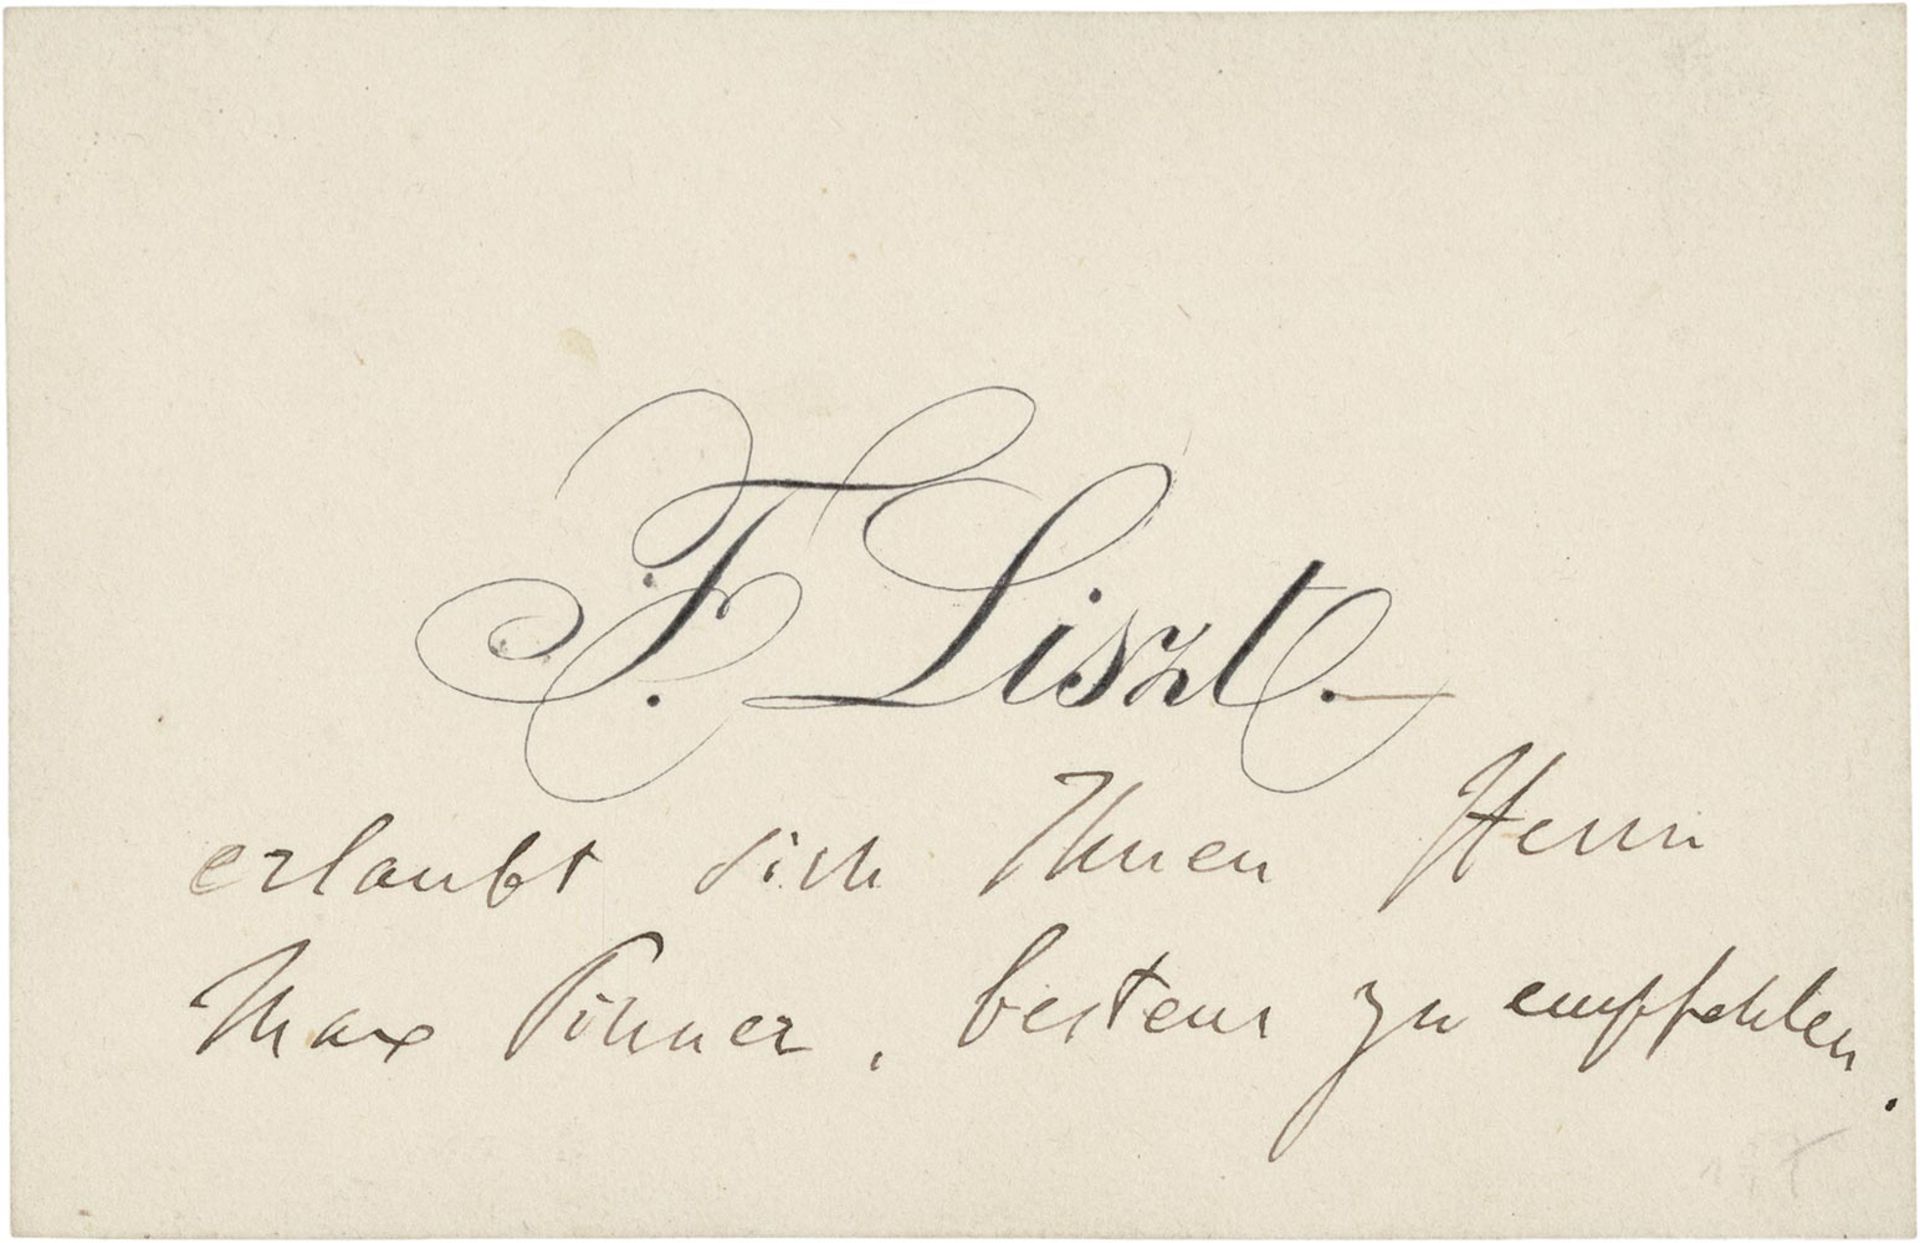 F. Liszt.
erlaubt sich Ihnen Herrn
Max Pinner, bestens zu empfehlen.